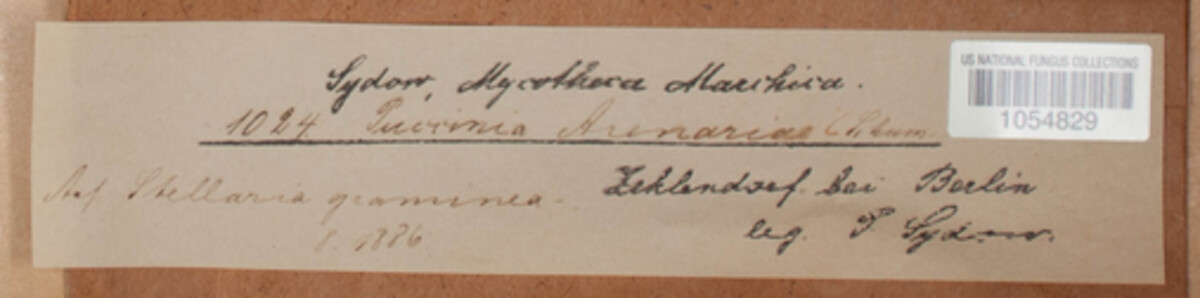 Sydow, Mycotheca Marchica.
US NATIONAL FUNGUS COLLECTIONS
1054829
1024. Puccinia Arenariae (Schum.
Auf Stellaria graminea.
8. 1886
Zehlendorf bei Berlin
leg. P. Sydow.